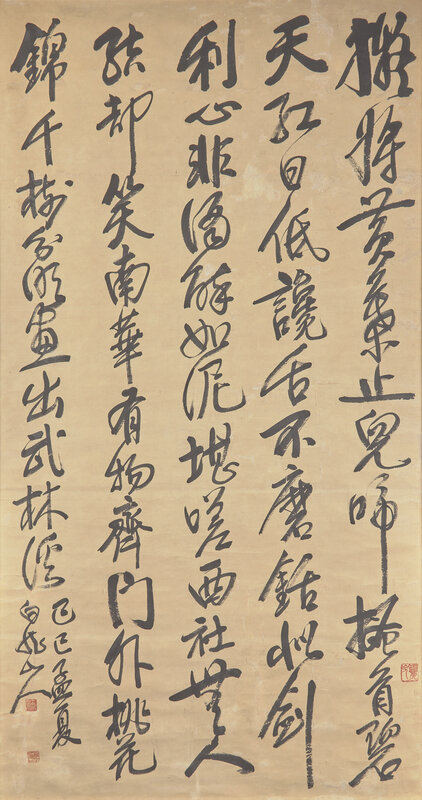 擬將黃葉止兒啼搔首碧
天紅日低讒舌不磨銛似劍
利心非酒醉如泥堪嗟西社無人
結卻笑南華有物齊門外桃花
錦千樹分明畫出武林溪
己巳孟夏
白龍山人